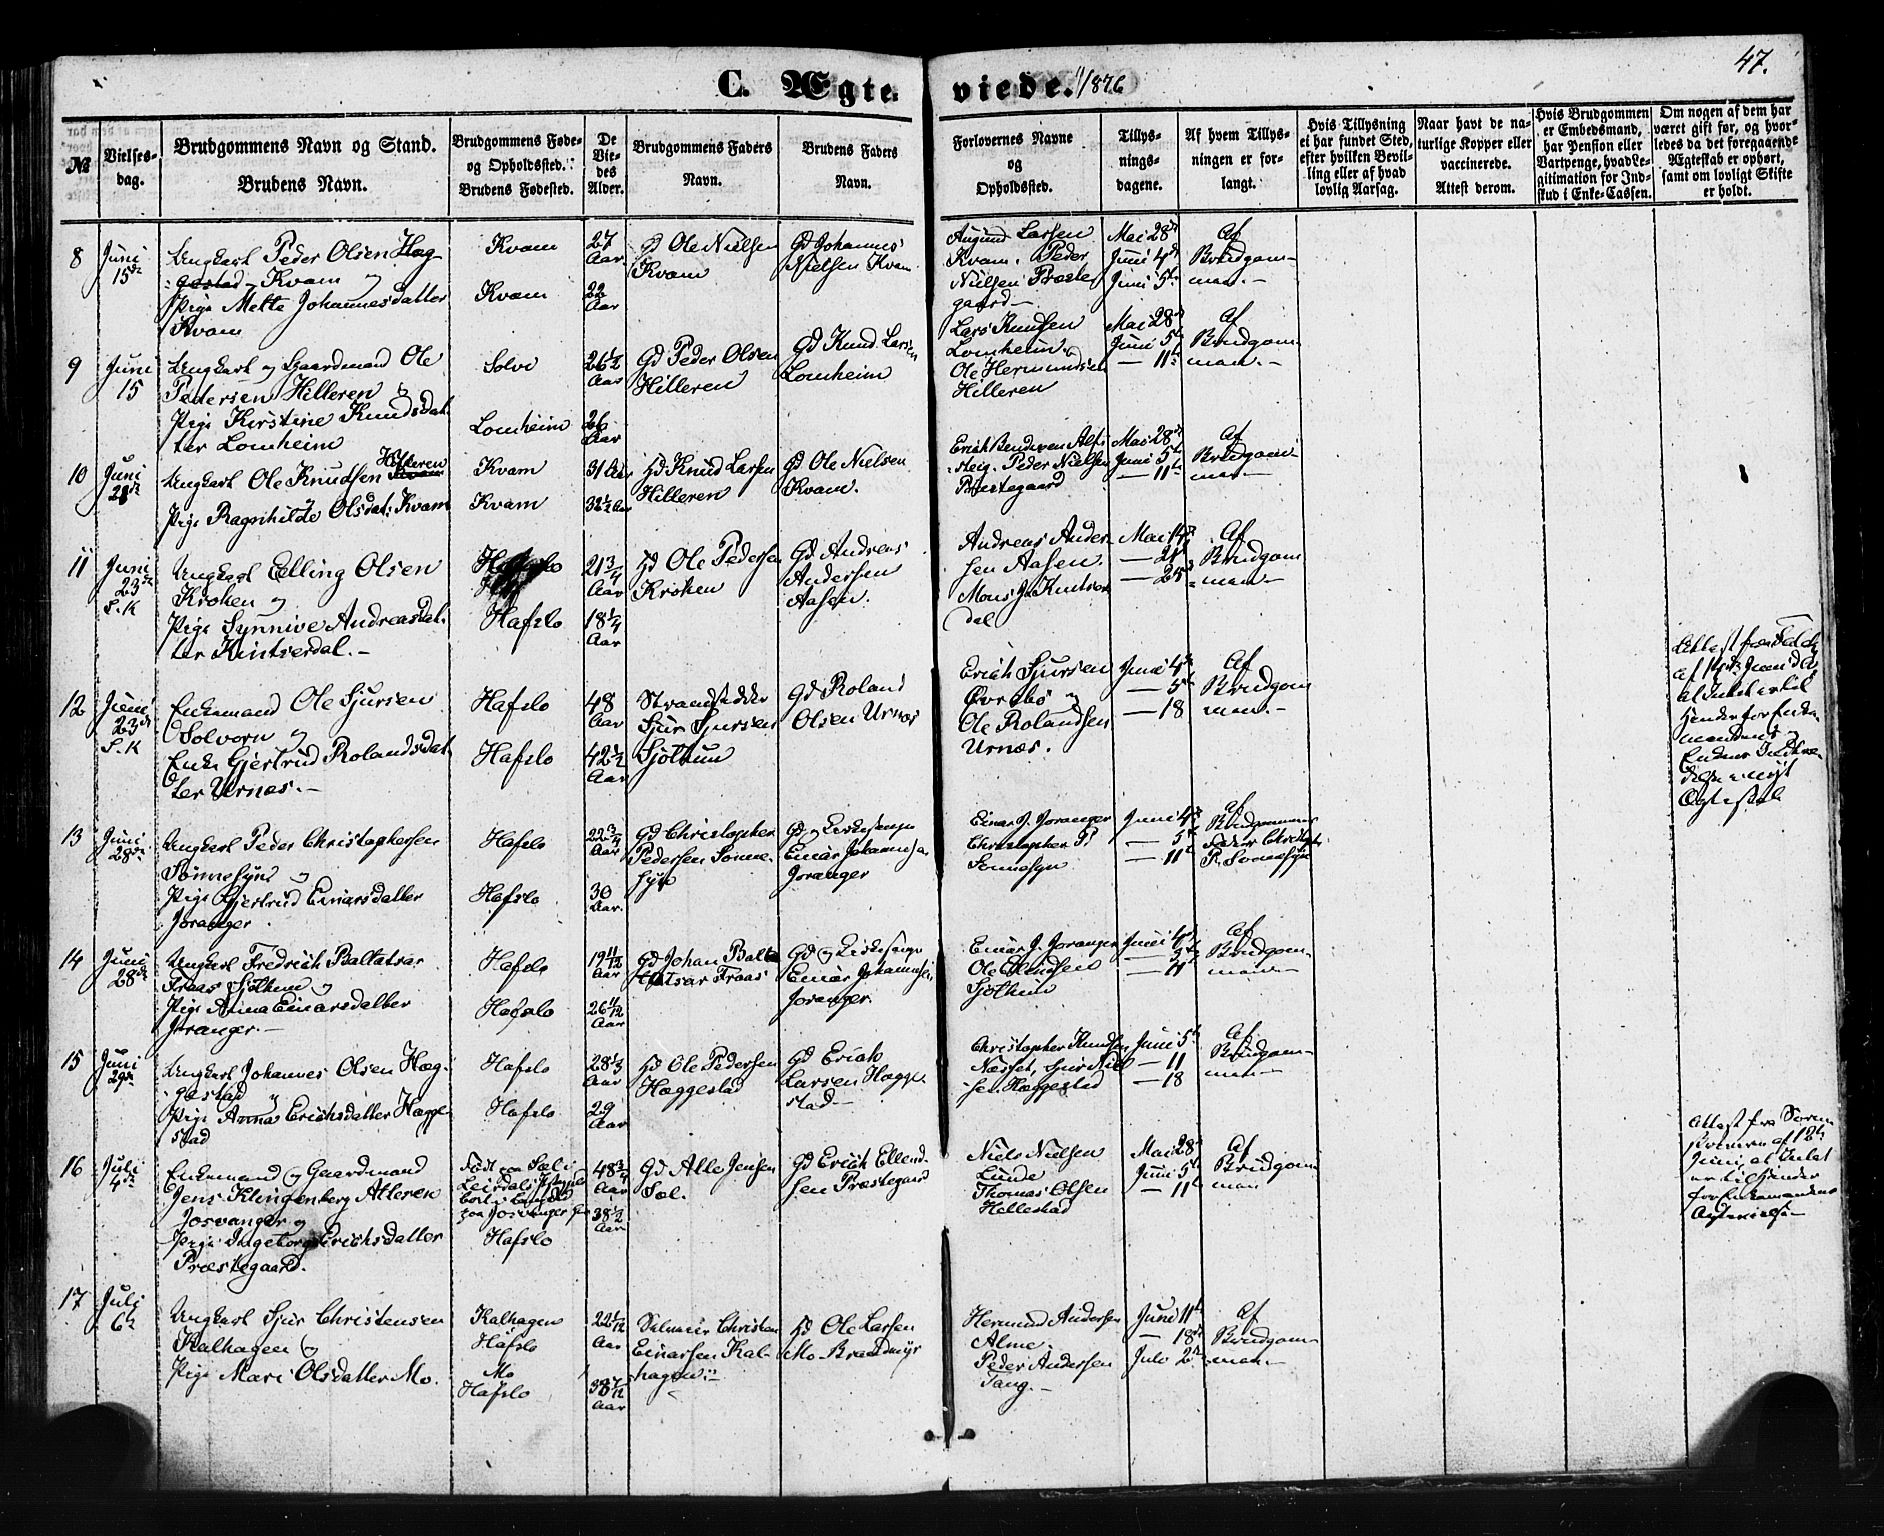 C. Ægte
viede. 1876
47.
№
Vielses-
dag.
Brudgommens Navn og Stand.
Brudens Navn.
Brudgommens Føde-
og Opholdssted.
Brudens Fødested.
De
Vie-
des
Alder.
Brudgommens Faders
Navn.
Brudens Faders
Navn.
Forlovernes Navne
og
Opholdssted.
Tillys-
nings-
dagene.
Af hvem Tillys-
ningen er for-
langt.
Hvis Tillysning
ei har fundet Sted,
efter hvilken Bevil-
ling eller af hvad
lovlig Aarsag.
Naar havt de na-
turlige Kopper eller
vaccinerede.
Attest derom.
Hvis Brudgommen
er Embedsmand,
har Pension eller
Vartpenge, hvad Le-
gitimation for Ind-
skud i Enke-Cassen.
Om nogen af dem har
været gift før, og hvor-
ledes da det foregaaende
Ægteskab er ophørt,
samt om lovligt Skifte
er holdt.
8
Juni
15de
Ungkarl Peder Olsen Hæg-
gestad - Kvam og
Pige Mette Johannesdatter
Kvam
Kvam
Kvam
27
Aar
22
Aar
Gd Ole Nielsen
Kvam
Gd Johannes
Nielsen Kvam
Augund Larsen
Kvam. Peder
Nielsen Præste
gaard
Mai 28de
Juni 4de
Juni 5te
Af
Brudgom-
man.-
9
Juni
15
Ungkarl og Gaardmand Ole
Pedersen Hilleren og
Pige Kirstine Knudsdat
ter Lomheim
Solvi
Lomheim
26½
Aar
26
Aar
Gd Peder Olsen
Hilleren
Gd Knud Larsen
Lomheim
Lars Knudsen
Lomheim og
Ole Hermundsen
Hilleren
Mai 28
Juni 5te
— 11te
Af
Brudgom
man.-
10
Juni
21de
Ungkarl Ole Knudsen Hilleren
Pige Ragnhilde Olsdat: Kvam
Kvam
Kvam
31 Aar
32½ Aar
Gd Knud Larsen
Hilleren
Gd Ole Nielsen
Kvam.
Erich Bendixen Alf-
steig. Peder Nielsen
Præstegaard
Mai 28de
Juni 5te
— 11te
Af
Brudgom
man-
11
Juni
23de
S.K
Ungkarl Elling Olsen
Kroken og
Pige Synnive Andreasdat-
ter Kintserdal.-
Hafslo
Hafslo
21¾
Aar
18¼
Aar
Gd Ole Pedersen
Kroken
Gd Andreas
Andersen
Aasen.
Andreas Ander
sen Aasen.
Mons J. Kintser
dal
Mai 14de
— 21de
— 25de
Af
Brudgom
man.-
12
Juni
23de
S.K
Enkemand Ole Sjursen
Solvorn og
Enke Gjertrud Rolandsdat
ter Urnæs.-
Hafslo
Hafslo
48
Aar
42½
Aar
Strandsidder
Sjur Sjursen
Sjøthun
Gd Roland
Olsen Urnæs
Erich Sjursen
Øvrebø og
Ole Rolandsen
Urnæs.
Juni 4de
— 5te
— 18
Af
Brudgom
man.-
Ægteskab
13
Juni
28de
Ungkarl Peder Christophersen
Sønnesyn og
Pige Gjertrud Einarsdatter
Joranger
Hafslo
Hafslo
22¾
Aar
30
Aar.
Gd Christopher
Pedersen Sønne-
syn
Gd og Kirkesanger
Einar Johannesen
Joranger
Einar J. Joranger
Christopher P.
Sønnesyn
Juni 4de
— 5te
— 11te
af
Brudgommens
Fader Christoph
P. Sønnesyn
14
Juni
28de
Ungkarl Fredrich Baltatsar
Fraas Sjøthun og
Pige Anna Einarsdatter
Joranger.-
Hafslo
Hafslo
19 11/12
Aar
26 11/12
Aar
Gd Johan Balta
tsar Fraas
Gd og Kirkesanger
Einar Johannesen
Joranger.
Einar J. Joranger
Sjøthun
Juni 4de
— 5te
— 11
Af
Brudgom-
man-
15
Juni
29de
Ungkarl Johannes Olsen Hæg-
gestad og
Pige Anna Erichsdatter Hægge-
stad
Hafslo
Hafslo
28⅓
Aar
29
Aar
Gd Ole Pedersen
Hæggestad
Gd Erich
Larsen Hægge-
stad-
Christopher Knudsen
Næsset, Sjur Niel
sen Hæggestad
Juni 5te
— 11
— 18
Af
Brudgom-
man.-
16
Juli
4de
Enkemand og Gaardmand
Jens Klingenberg Atleren
Josvanger og
Pige Ingeborg Erichsdatter
Præstegaard.
Født paa Sæl i
Hafslo
48¾
Aar
38½
Aar
Gd Atle Jensen
Sæl.
Gd Erich Ellend-
sen Præstegaard
Niels Nielsen
Lunde
Thomas Olsen
Hellestad
Mai 28de
Juni 5te
— 11te
Af
Brudgom
man
Attest fra Soren
skriveren af 12te
Juni, at Intet
er til Hinder
for Enkemandens
17
Juli
6te
Ungkarl Sjur Christensen
Kalhagen og
Pige Mari Olsdatter Mo.
Kalhagen
Hafslo
Mo
Hafslo
22 1/12
Aar
38 7/12
Aar
Selveier Christen
Einarsen Kal-
hagen.-
Gd Ole Larsen
Mo - Brandmyr
Hermund Andersen
Alme.
Peder Andersen
Tang.-
Juni 11te
— 18de
Juli 2den
Af
Brudgom-
man.-